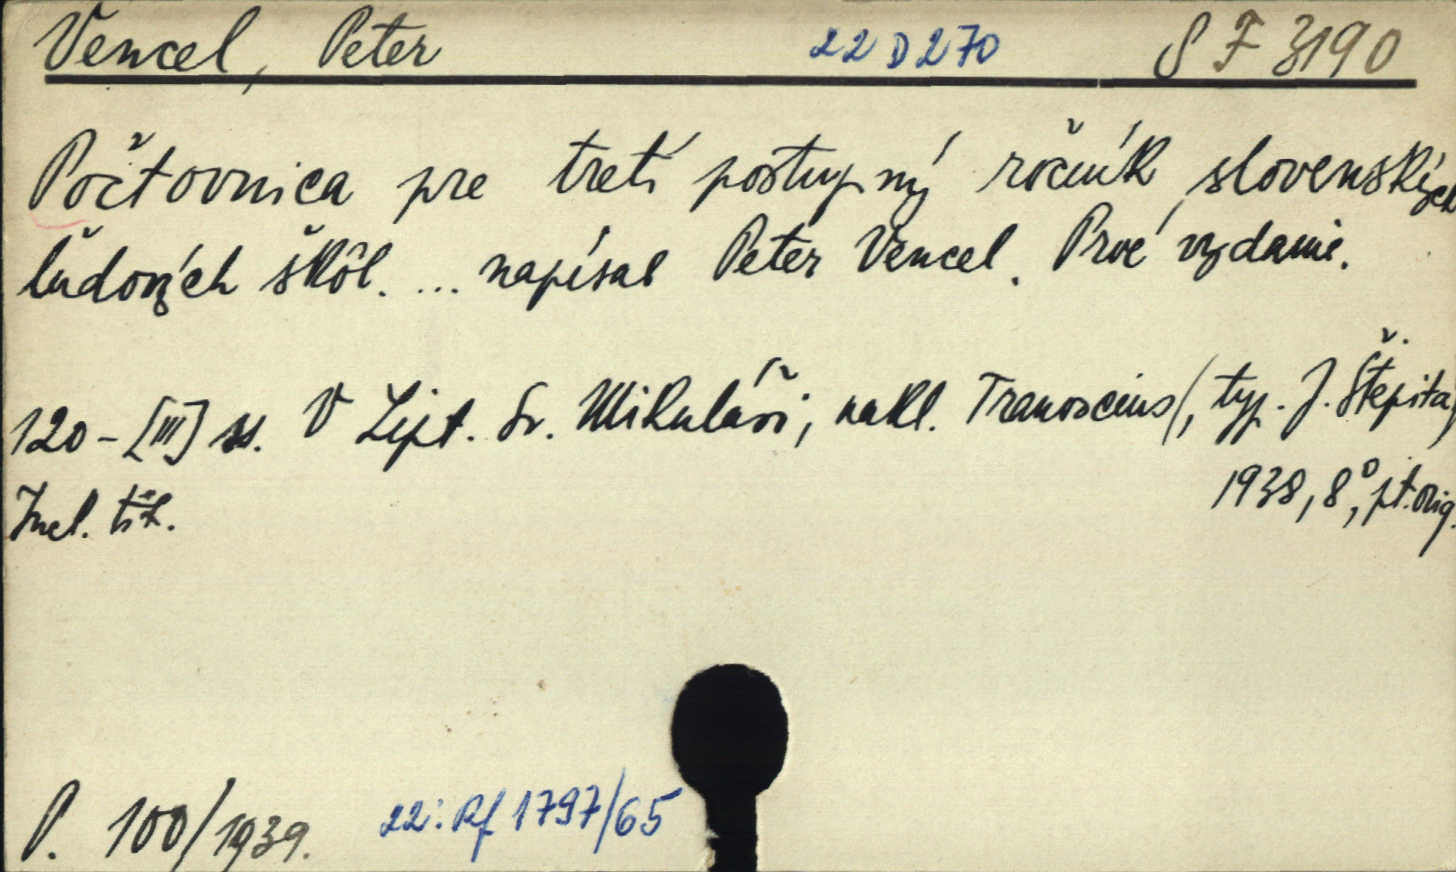 Vencel, Peter 22 D 270 S F 3190
Počtovnica pre tretí postupný ročník slovenských
ľudových škôl. ... napísal Peter Vencel. Prvé vydanie.
120-[III] ss. V Lipt. Sv. Mikuláši, nakl. Tranoscius (, typ. J. Štepita)
1938, 8°, pt. orig.
Incl. tit.
P. 100/1939. 22: Rf 1797/65